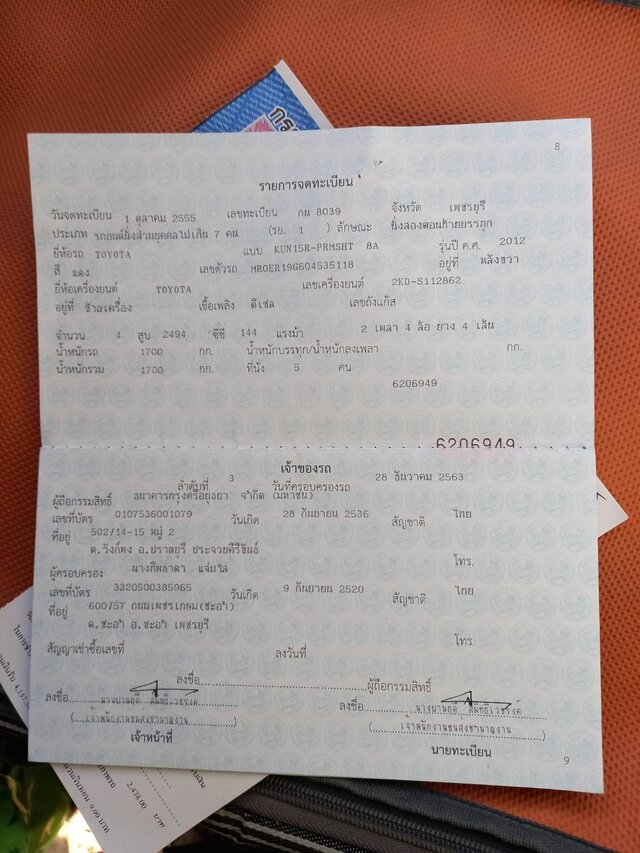 กรม
8
รายการจดทะเบียน
วันจดทะเบียน 1 ตุลาคม 2555 เลขทะเบียน กน 8039 จังหวัด เพชรบุรี
ประเภท รถยนต์นั่งส่วนบุคคลไม่เกิน 7 คน (รย. 1 ) ลักษณะ นั่งสองตอนท้ายบรรทุก
ยี่ห้อรถ TOYOTA แบบ KUN15R-PRMSHT 8A รุ่นปี ค.ศ. 2012
สี แดง เลขตัวรถ MR0ER19G604535118 อยู่ที่ หลังขวา
ยี่ห้อเครื่องยนต์ TOYOTA เลขเครื่องยนต์ 2KD-S112862
อยู่ที่ ซ้ายเครื่อง เชื้อเพลิง ดีเซล เลขถังแก๊ส
จำนวน 4 สูบ 2494 ซีซี 144 แรงม้า 2 เพลา 4 ล้อ ยาง 4 เส้น
น้ำหนักรถ 1700 กก. น้ำหนักบรรทุก/น้ำหนักลงเพลา กก.
น้ำหนักรวม 1700 กก. ที่นั่ง 5 คน
6206949
6206949
เจ้าของรถ
ลำดับที่ 3 วันที่ครอบครองรถ 28 ธันวาคม 2563
ผู้ถือกรรมสิทธิ์ ธนาคารกรุงศรีอยุธยา จำกัด (มหาชน)
เลขที่บัตร 0107536001079 วันเกิด 28 กันยายน 2536 สัญชาติ ไทย
ที่อยู่ 502/14-15 หมู่ 2
ต.วังก์พง อ.ปราณบุรี ประจวบคีรีขันธ์ โทร.
ผู้ครอบครอง นางทิพลาดา แจ่มใส
เลขที่บัตร 3320500385965 วันเกิด 9 กันยายน 2520 สัญชาติ ไทย
ที่อยู่ 600/57 ถนนเพชรเกษม(ชะอำ)
ต.ชะอำ อ.ชะอำ เพชรบุรี โทร.
สัญญาเช่าซื้อเลขที่ ลงวันที่
ลงชื่อ ผู้ถือกรรมสิทธิ์
ลงชื่อ ลงชื่อ
(เจ้าพนักงานขนส่งชำนาญงาน) (เจ้าพนักงานขนส่งชำนาญงาน)
เจ้าหน้าที่ นายทะเบียน
9
2,438.00 บาท
0.00 บาท